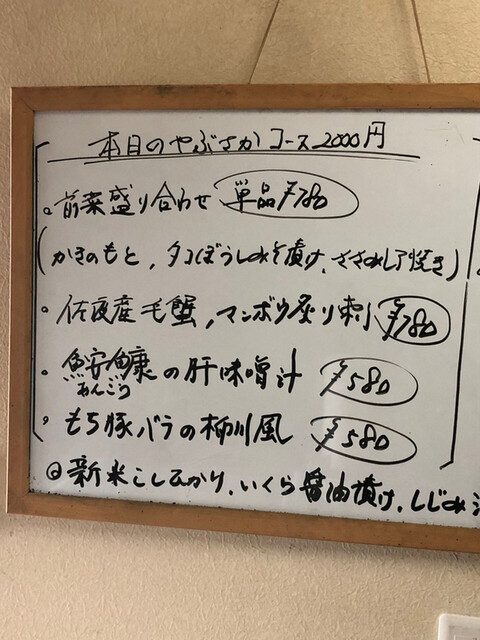 本日のやぶさかコース2000円
。前菜盛り合わせ 単品¥780
(かきのもと、タコぼうしみそ漬け、ささみ一夜焼き)
・佐渡産毛蟹、マンボウ炙り刺 ¥780
・鮟鱇の肝味噌汁 ¥580
あんこう
・もち豚バラの柳川風 ¥580
◎新米こしひかり、いくら醤油漬け、しじみ